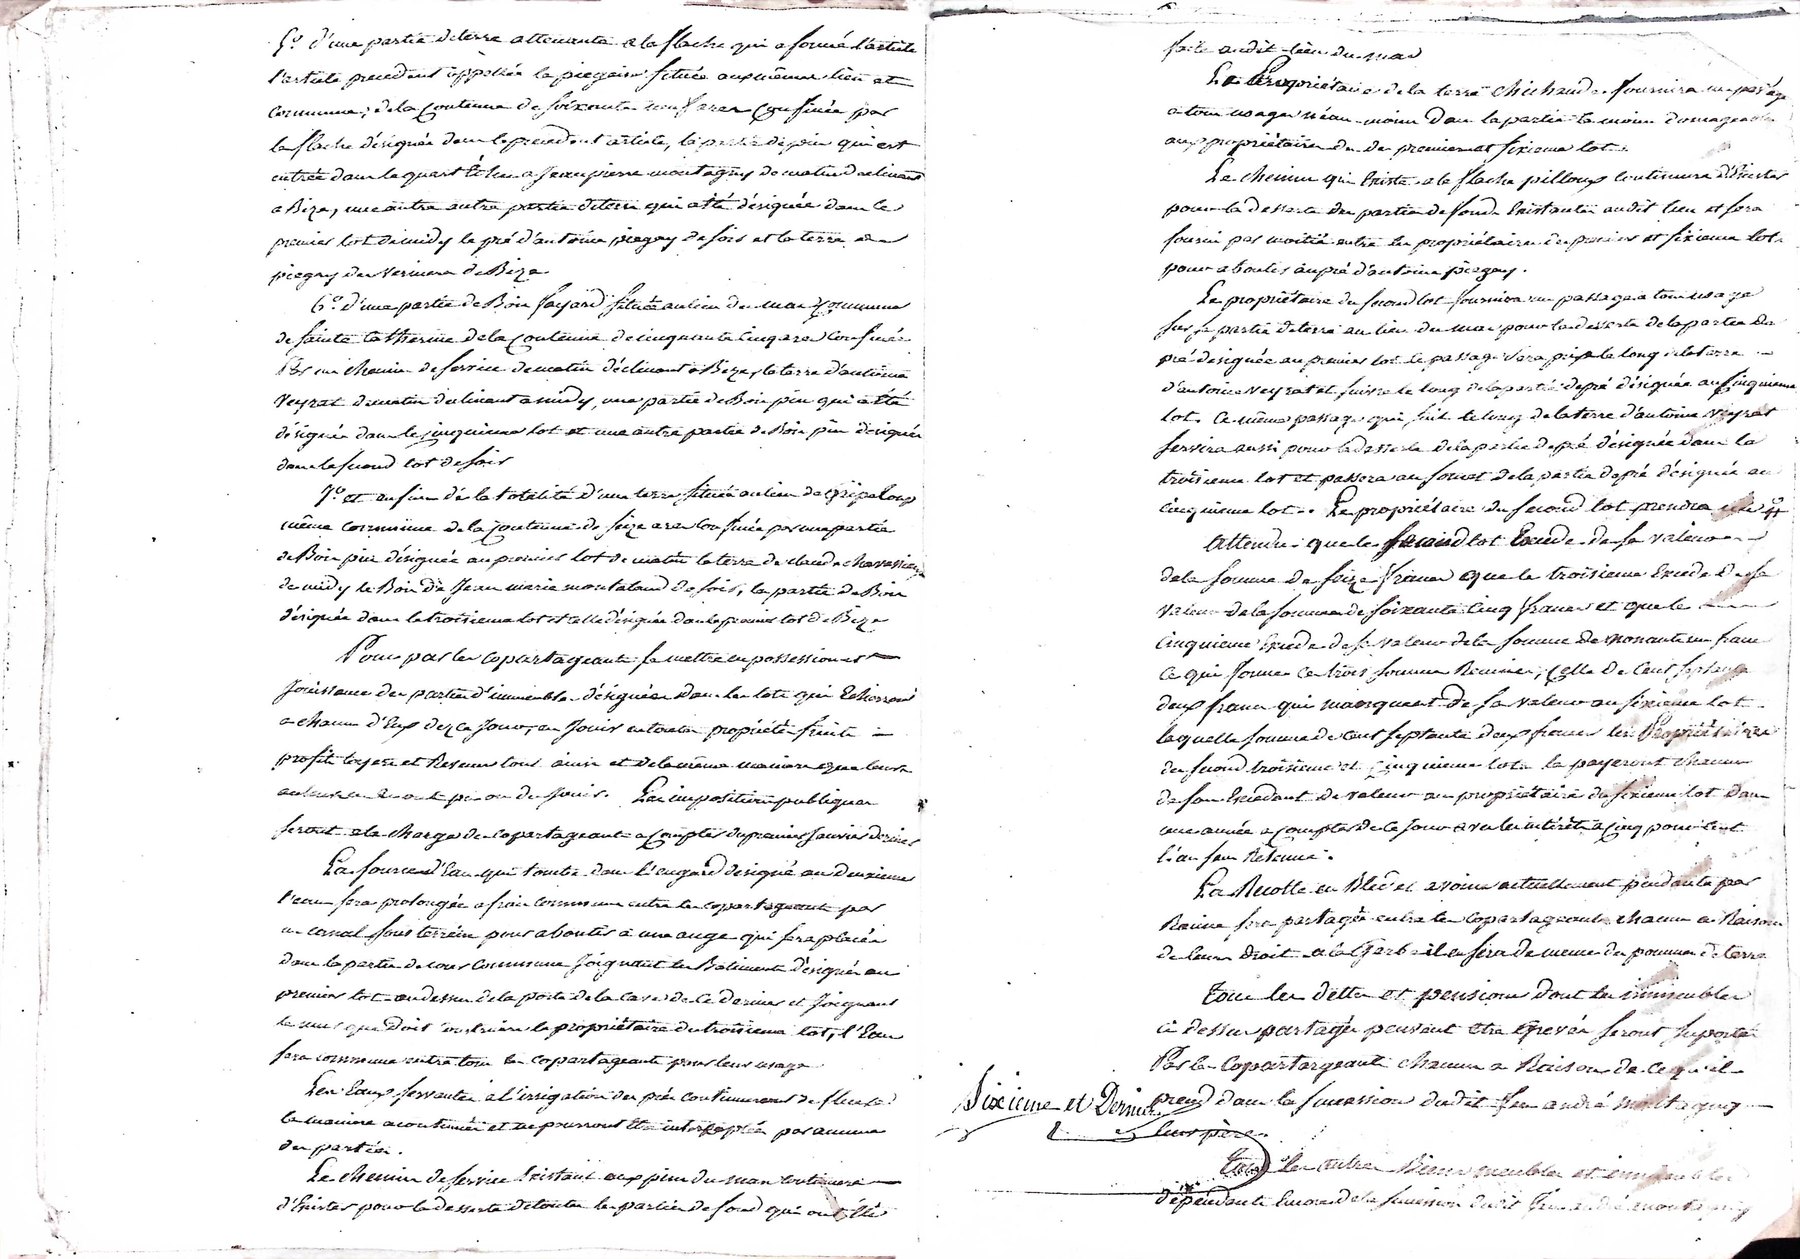 5° d'une partie de terre attenante a la flache qui a formé l'article
l'article precedent appellée la piegaire située aux mêmes lieu et
commune, de la contenue de soixante neuf ares confinée par
la flache désignée dans le precedent article, la partie de pin qui est
entrée dans le quart lot a Jean pierre montagny de matin declinant
a Bize, une autre autre partie de terre qui a été désignée dans le
premier lot de midy le pré d'antoine piegay de soir et la terre des
piegay du verinere de Bize
6° d'une partie de Bois fayard située au lieu du mas commune
de sainte Catherine de la contenue de cinquante cinq ares confinée
Par un chemin de service de matin déclinant a Bize, la terre d'antoine
Veyrat de matin declinant a midy, une partie de Bois pin qui a été
désignée dans le cinquieme lot et une autre partie de Bois pin désignée
dans le second lot de soir
7° et enfin de la totalité d'une terre située au lieu de Gripeloup
même commune de la contenue de seize ares confinée par une partie
de Bois pin désignée au premier lot de matin la terre de claude chavassieux
de midy le Bois de Jean marie montaland de soir, la partie de Bois
désignée dans le troisieme lot et celle désignée dans le premier lot de Bize
Pour par les copartageants se mettre en possession et
Jouissance des parties d'immeubles désignées dans les lots qui Echerront
a chacun d'Eux dez ce Jour, en Jouir en toutes propriété fruits
profits loyers et Revenus tout ainsi et de la même maniere que leurs
auteurs en ont pu ou dû Jouir. Les impositions publiques
seront a la charge des copartageants a compter du premier Janvier dernier
La source d'Eau qui tombe dans l'engard designé au deuxieme
l'eau sera prolongée a frais communs entre les copartageants par
un canal souterrein pour aboutir a une auge qui sera placée
dans la partie de cour commune Joignant les Batiments désignés au
premier lot au dessus de la porte de la cave de ce dernier et Joignant
le mur que doit construire le propriétaire du troisieme lot, l'Eau
sera commune entre tous les copartageants pour leur usage
Les Eaux servantes a l'irrigation des prés continueront de fluer de
la maniere acoutumée et ne pourront être interceptés par aucune
des parties.
Le chemin de service Existant aux pins du mas continuera
d'Exister pour la desserte de toutes les parties de fond qui ont été
fait audit lieu du mas
Le Propriétaire de la terre chichaude fournira un passage
a tous usages néan-moins dans la partie la moins domageable
aux propriétaires du premier et sixieme lot.
Le chemin qui Existe a la flache pilloux continuera d'Exister
pour la desserte des parties de fonds Existantes audit lieu et sera
fourni par moitié entre les propriétaires des premier et sixieme lots
pour aboutir au pré d'antoine piegay.
Le propriétaire du second lot fournira un passage a tous usage
sur sa partie de terre au lieu du mas pour la desserte de la partie du
pré designée au premier lot le passage sera pris le long de la terre
d'antoine veyrat et suivra le long de la partie de pré désignée au cinquieme
lot. Ce même passage qui suit le long de la terre d'antoine veyrat
servira aussi pour la desserte de la partie de pré désignée dans le
troisieme lot et passera au somet de la partie de pré désignée au
cinquieme lot. Le propriétaire du second lot prendra
Attendu que le second lot Excede de sa valeur
de la somme de seize francs que le troisieme Excede de sa
valeur de la somme de soixante cinq francs et que le
cinquieme Excede de sa valeur de la somme de nonante un franc
ce qui forme ces trois sommes Reunies, celle de Cent septante
deux francs qui manquent de sa valeur au sixieme lot
laquelle somme de cent septante deux francs les Propriétaires
des second troisieme et cinquieme lots la payeront chacun
de son Excedant de valeur au propriétaire du sixieme lot dans
une année a compter de ce Jour avec les intérêts a Cinq pour cent
l'an sans Retenue.
La Recolte en Bled et avoine actuellement pendante par
Racine sera partagée entre les copartageants chacun a Raison
de leurs droits a la Gerbe il en sera de meme des pommes de terre
Tous les dettes et pensions dont les immeubles
ci dessus partagés peuvent etre Grevés seront suportés
Par les Copartargeants chacun a Raison de ce qu'il
prend dans la succession dudit feu andré montagny
Sixieme et Dernier
leur père.
Tous les autres Biens meubles et immeubles
dépendants Encore de la succession dudit feu andré montagny